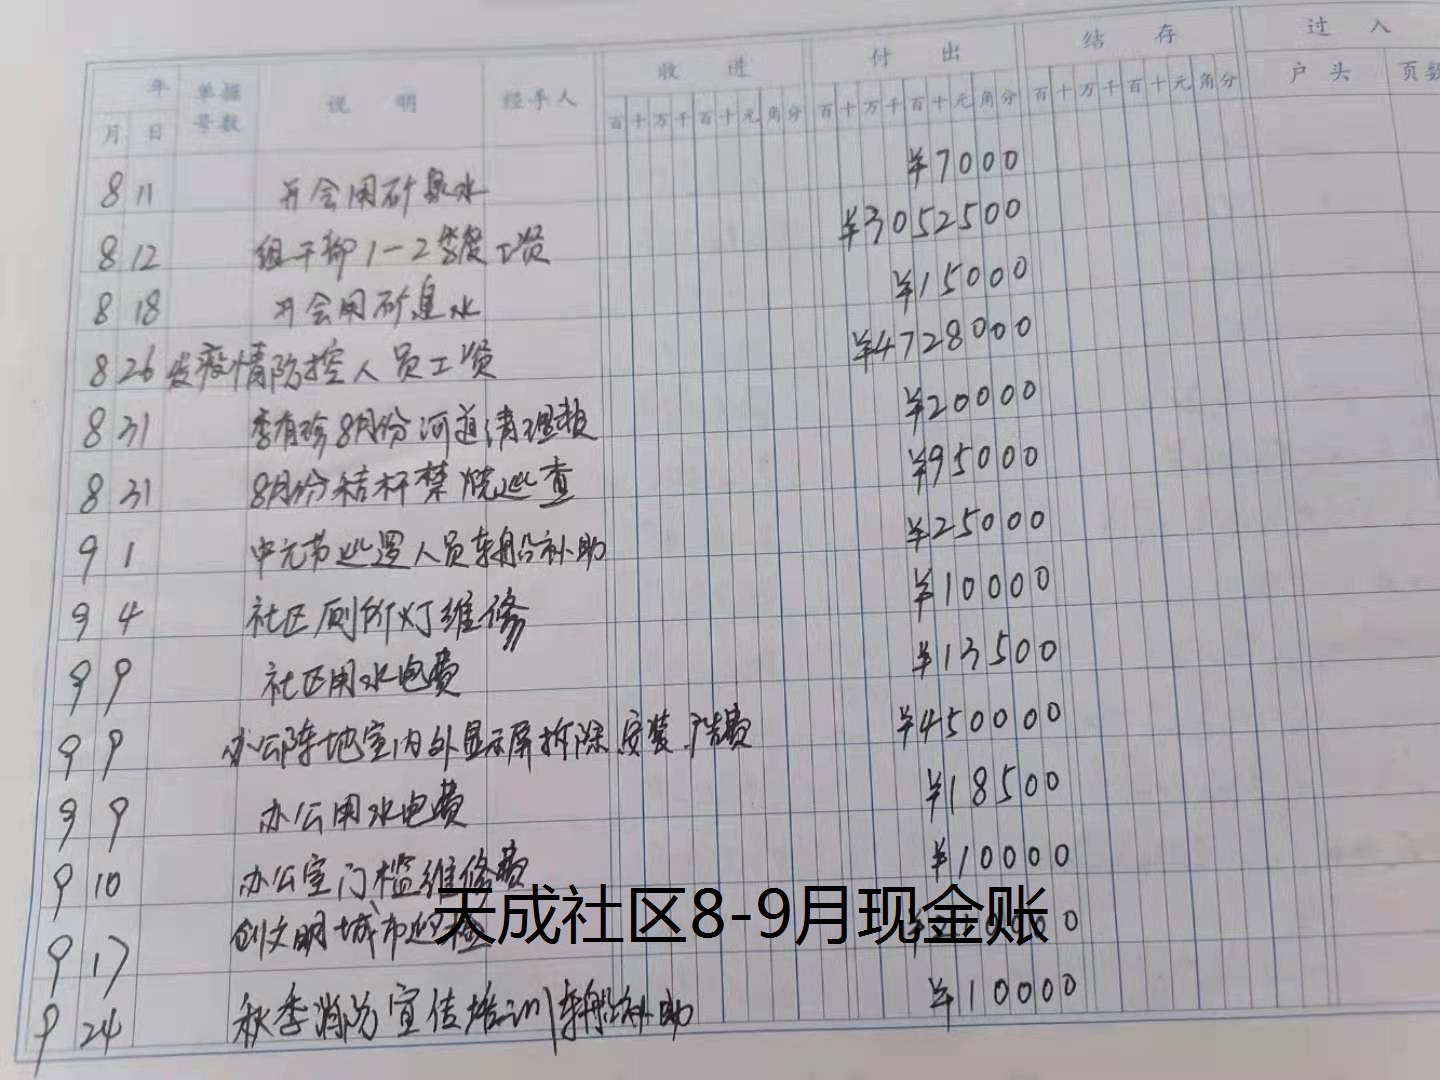 年 单据 说 明 经手人 收 进 付 出 结 存 过 入
月 日 号数 百十万千百十元角分 百十万千百十元角分 百十万千百十元角分 户 头 页数
8 11 开会用矿泉水 ¥7000
8 12 组干部1-2季度工资 ¥3052500
8 18 开会用矿泉水 ¥15000
8 26 发疫情防控人员工资 ¥4728000
8 31 李有珍8月份河道清理款 ¥20000
8 31 8月份秸秆禁烧巡查 ¥95000
9 1 中元节巡逻人员车船补助 ¥25000
9 4 社区厕所灯维修 ¥10000
9 9 社区用水电费 ¥13500
9 9 办公阵地室内外显示屏拆除 安装 广告费 ¥450000
9 9 办公用水电费 ¥18500
9 10 办公室门槛维修费 ¥10000
9 17 创文明城市巡检
天成社区8-9月现金账
9 24 秋季消防宣传培训车船补助 ¥10000